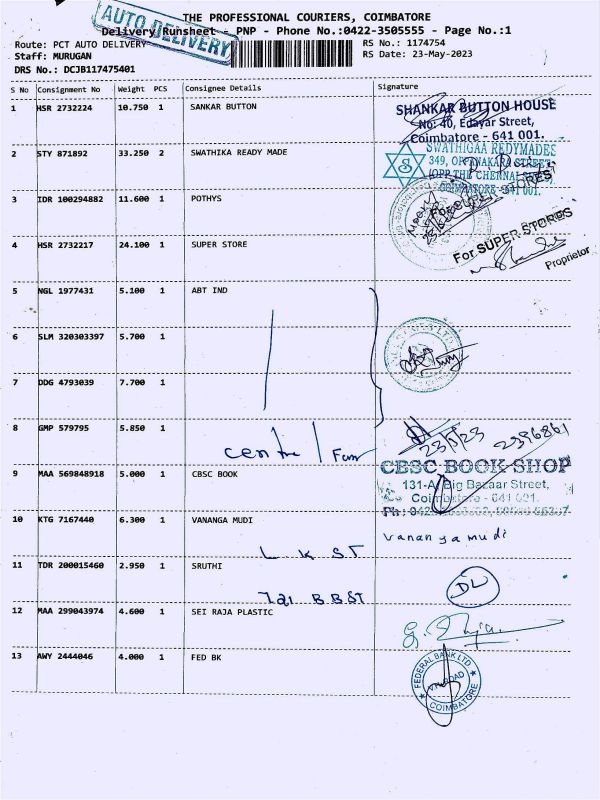 AUTO DELIVERY
THE PROFESSIONAL COURIERS, COIMBATORE
Delivery Runsheet - PNP - Phone No.:0422-3505555 - Page No.:1
Route: PCT AUTO DELIVERY
RS No.: 1174754
Staff: MURUGAN
RS Date: 23-May-2023
DRS No.: DCJB117475401
S No Consignment No Weight PCS Consignee Details Signature
1 HSR 2732224 10.750 1 SANKAR BUTTON
SHANKAR BUTTON HOUSE
No: 40, Edayar Street,
Coimbatore - 641 001.
2 STY 871892 33.250 2 SWATHIKA READY MADE
SWATHIGAA REDYMADES
349, OPPANAKARA STREET
(OPP. THE CHENNAI
COIMBATORE - 641 001.
3 IDR 100294882 11.600 1 POTHYS
For SUPER STORES
4 HSR 2732217 24.100 1 SUPER STORE
For SUPER STORES
Proprietor
5 NGL 1977431 5.100 1 ABT IND
6 SLM 320303397 5.700 1
7 DDG 4793039 7.700 1
8 GMP 579795 5.850 1
23/5/23
2396861
9 MAA 569848918 5.000 1 CBSC BOOK
CBSC BOOK SHOP
131-A, Big Bazaar Street,
Coimbatore - 641 001.
10 KTG 7167440 6.300 1 VANANGA MUDI
vanangamudi
L K ST
11 TDR 200015460 2.950 1 SRUTHI
DL
121 B B ST
12 MAA 299043974 4.600 1 SEI RAJA PLASTIC
13 AWY 2444046 4.000 1 FED BK
FEDERAL BANK LTD.
COIMBATORE